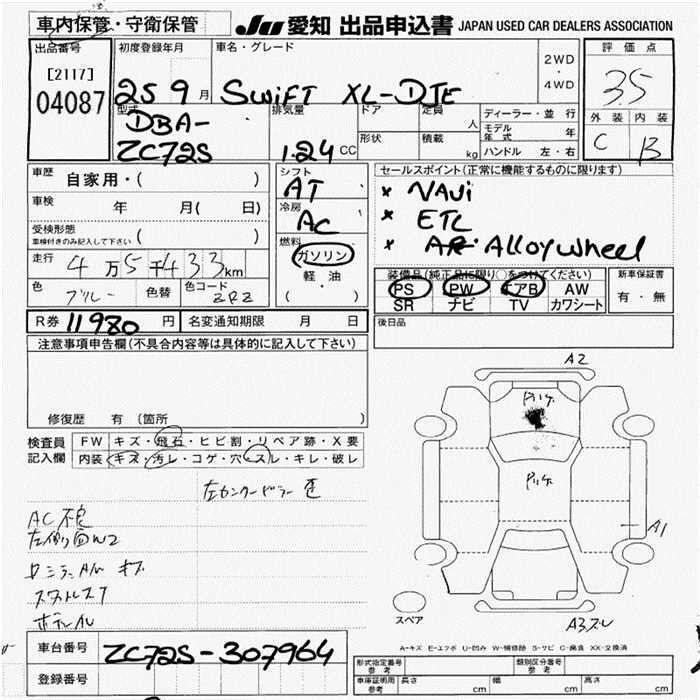 車内保管・守衛保管
JU 愛知 出品申込書 JAPAN USED CAR DEALERS ASSOCIATION
出品番号
[2117]
04087
初度登録年月
25 9 月
車名・グレード
SWIFT XL-DJE
2WD
・
4WD
評価点
3.5
外装 内装
C B
型式
DBA-
ZC72S
排気量
1.24 CC
ドア
定員
人
形状
積載
kg
ディーラー・並行
モデル年式 年
ハンドル 左・右
車歴
自家用・( )
車検
年 月( 日)
受検形態
車検付きのみ記入して下さい ( )
走行
4万5千433km
色
ブルー
色替
色コード
ZRZ
シフト
AT
冷房
AC
燃料
ガソリン
軽・油
( ・ )
セールスポイント(正常に機能するものに限ります)
× NAVi
× ETC
× Alloy wheel
装備品(純正品に限り○をつけてください)
PS PW エアB AW
SR ナビ TV カワシート
新車保証書
有・無
R券 11980 円
名変通知期限 月 日
後日品
注意事項申告欄(不具合内容等は具体的に記入して下さい)
修復歴 有(箇所 )
検査員
記入欄
FW キズ・飛石・ヒビ割・リペア跡・X要
内装 キズ・汚レ・コゲ・穴・スレ・キレ・破レ
AC不良
左側面W2
A2
A1
スペア
A-キズ E-エクボ U-凹み W-補修跡 S-サビ C-腐食 XX-交換済
車台番号
ZC72S-307964
登録番号
形式指定番号
参考
類別区分番号
参考
車庫証明用
参考
長さ cm
幅 cm
高さ cm